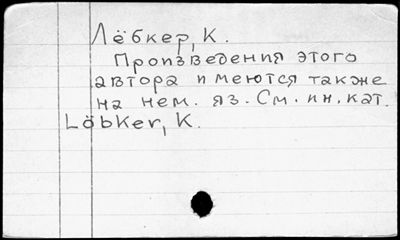 Лёбкер, К.
Произведения этого
автора имеются также
на нем. яз. См. ин. кат.
Löbker, K.